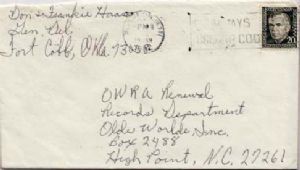 Don & Frankie Haas
Gen. Del.
Fort Cobb, Okla 73038
20
O W R A Renewal
Records Department
Olde Worlde, Inc.
Box 2488
High Point, N.C. 27261